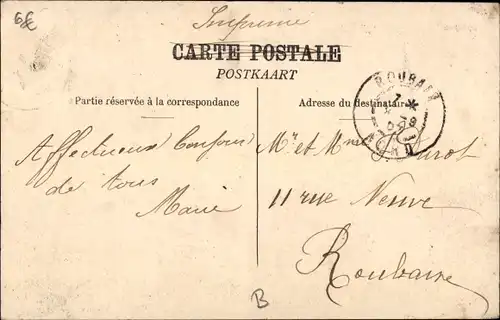 6€
Imprimé
CARTE POSTALE
POSTKAART
Partie réservée à la correspondance
Adresse du destinataire
ROUBAIX
NORD
Affectueux Bonjour
de tous
Marie
Mr et Mme
11 rue Neuve
Roubaix
B